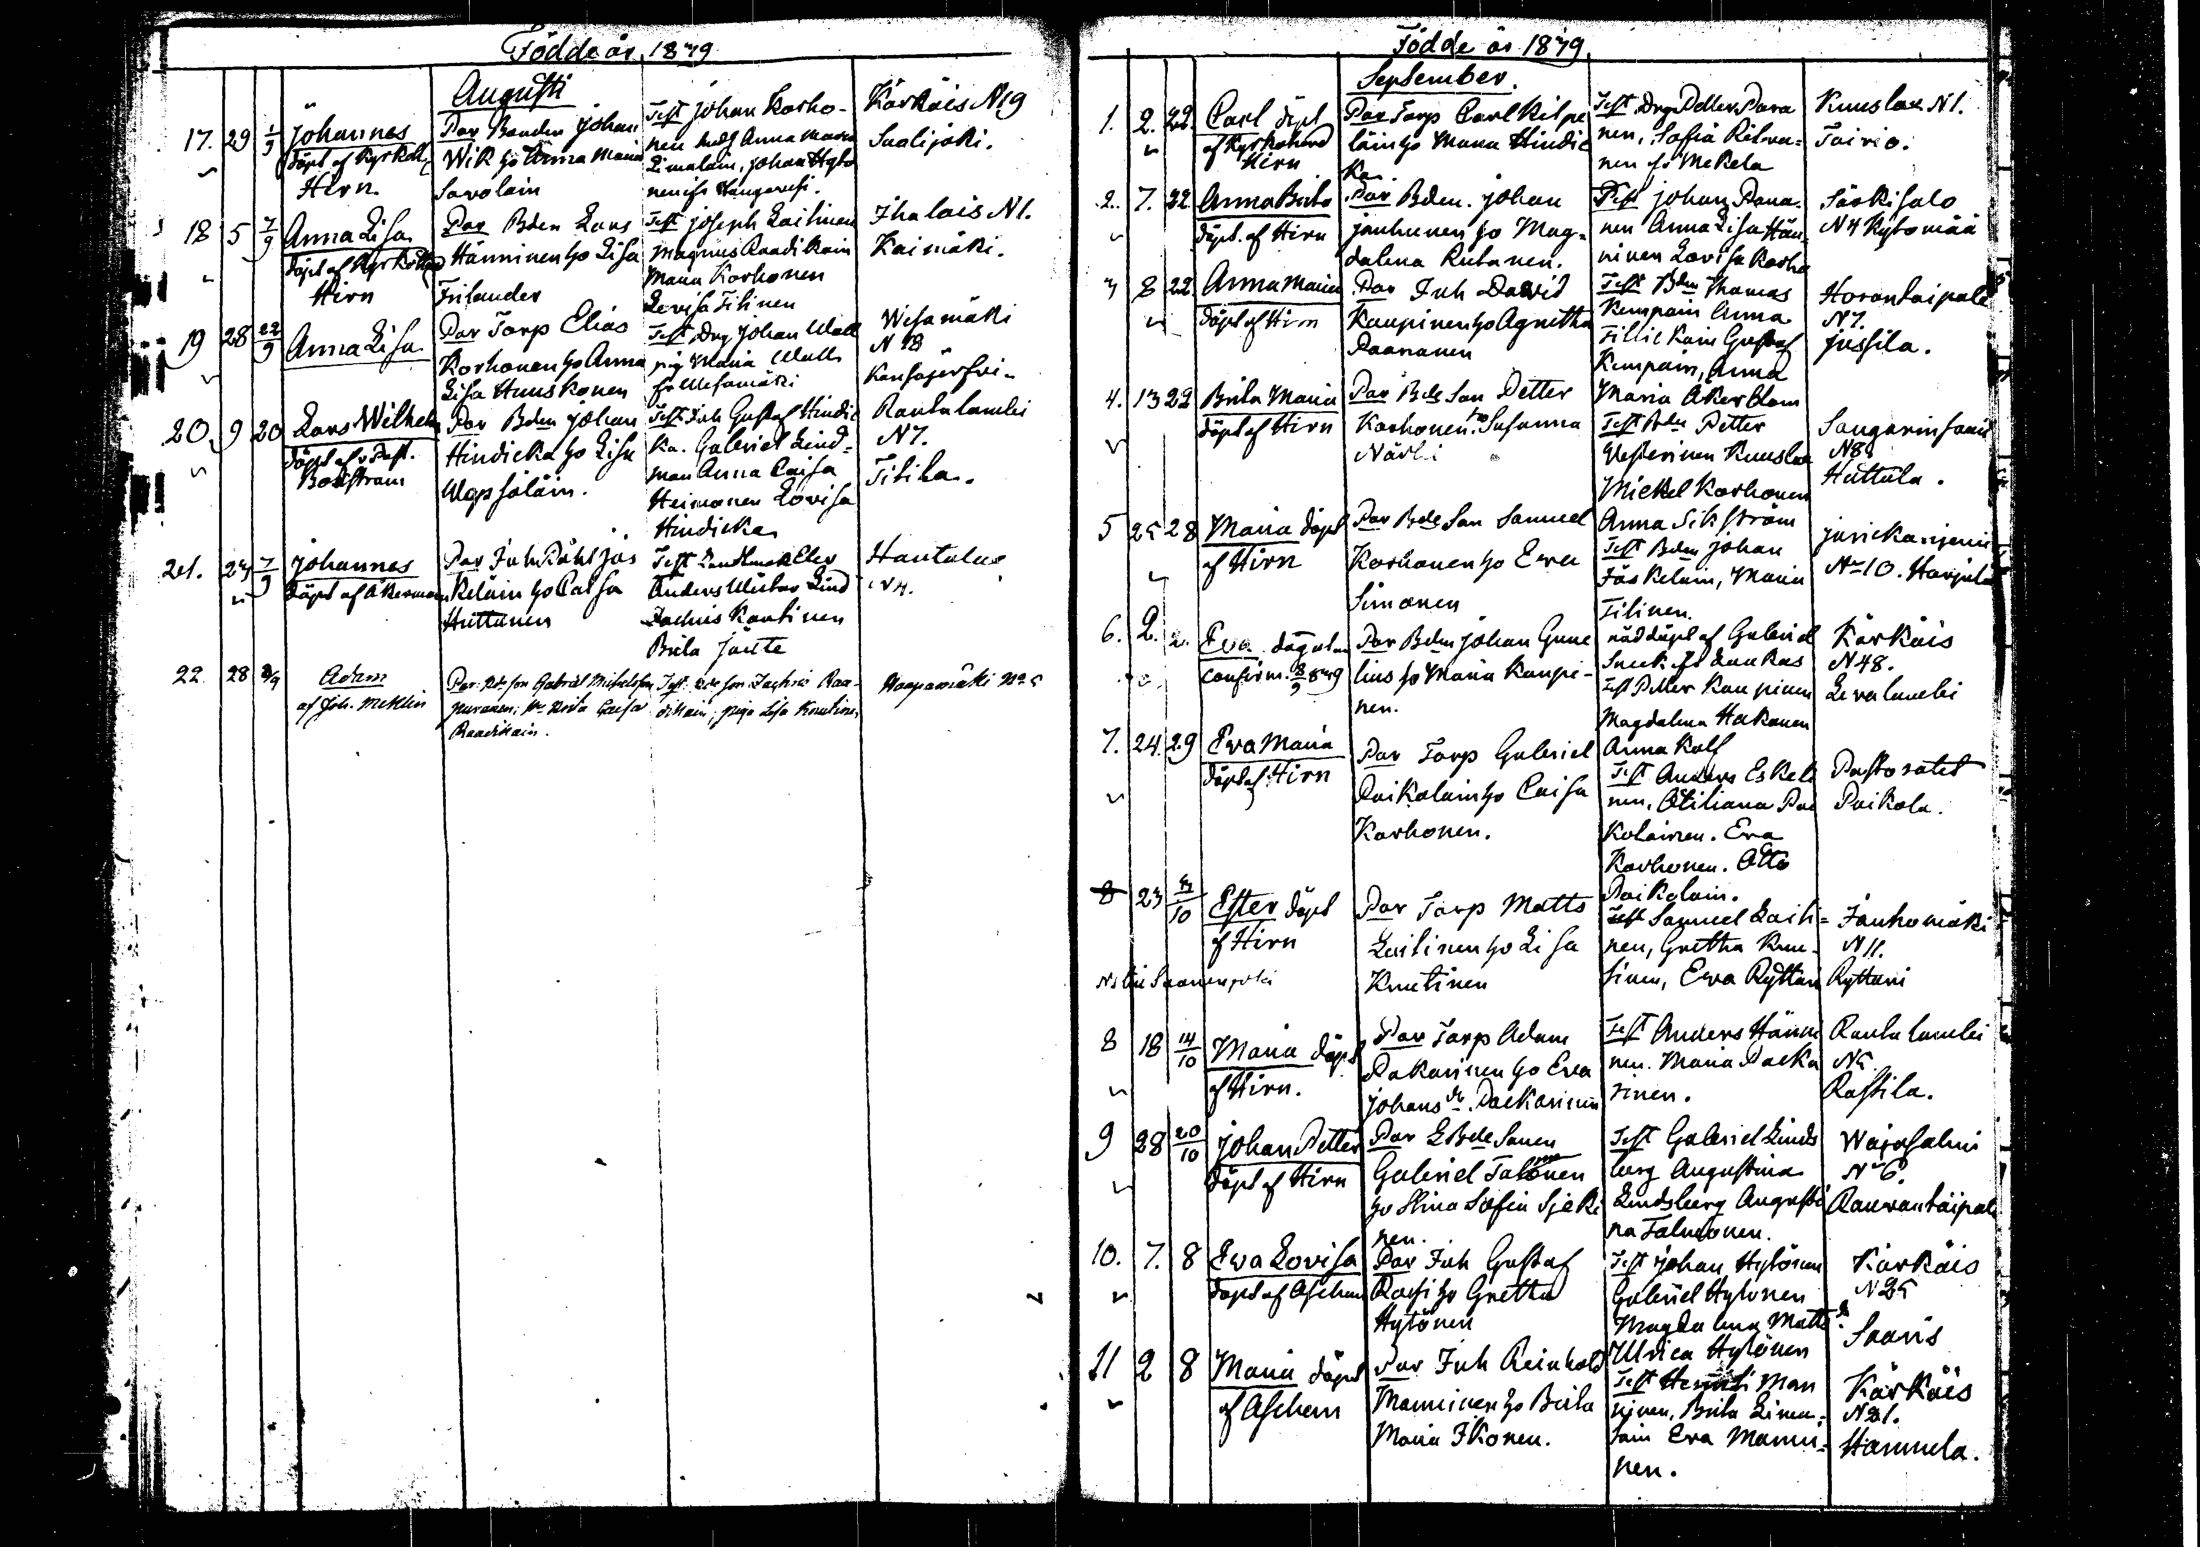 Födde år 1879
Augusti
17. 29 1/9 Johannes
döpt af Kyrkoh
Hirn.
Par Bonden Johan
Wik ho Anna Maria
Savolain
Test Johan Korho-
nen Anna Maria
Johan Hytö
nen
Kärkäis N19
Saalijoki.
18 5 7/9 Anna Lisa
döpt af
Hirn
Par Bden Lars
Hänninen ho Lisa
Frilander
Test Joseph Laitinen
Magnus Raadikain
Maria Korhonen
Lovisa Tilinen
Ihalais N1.
Kaimäki.
19 28 22/9 Anna Lisa
Par Torp Elias
Korhonen ho Anna
Lisa Huuskonen
Test Drg Johan Wall
pig Maria Wall
fr Wesamäki
Wesamäki
N 18
20. 9 20 Lars Wilhelm
döpt af v Past.
Boxström
Par Bden Johan
Hindicka ho Lisa
Test Inh Gustaf Hindic
ka. Gabriel Lind=
man Anna Caisa
Heimonen Lovisa
Hindicka
Rautalambi
N7.
Tilila.
21. 23 7/9 Johannes
döpt af Åkerman
Par Inh Påhl Jäs
keläin ho Caisa
Huttunen
Test
Anders Lind
Zachris Kautinen
Brita
Hantala
N4.
22. 28 Adam
af Joh. Meklin
Par: Bde son Gabriel Michelsson
Caisa
Raadikain.
Test: Bde son Zachris Raa-
dikain, piga Lisa Knuutinen
Haapamäki No 5
Födde år 1879
September.
1. 2. 22. Carl döpt
af Kyrkoherd
Hirn
Par Torp Carl Kilpe
läin ho Maria Hindic
ka.
Test Drg Petter Para
nen, Sofia Ritva=
nen fr Mekela
Kuuslax N1.
Toivio.
2. 7. 22 Anna Brita
döpt. af Hirn
Par Bden. Johan
Jauhunen ho Mag=
dalena Rutanen.
Test Johan Pana-
nen Anna Lisa Hän
ninen Lovisa Korho
Särkisalo
N4 Kytömää
3 8 22. Anna Maria
döpt af Hirn
Par Inh David
Kaupinen ho Agnetha
Paananen
Test Bden Thomas
Kempain Anna
Tillikain Gustaf
Kempain, Anna
Maria Åkerblom
Horontaipale
N7.
Jussila.
4. 13 22 Brita Maria
döpt af Hirn
Par Bde Son Petter
Korhonen. ho Susanna
Närhi
Test Bden Petter
Westerinen Kuuslax
Mickel Korhonen
Anna Sikström
N8.
Huttula.
5 25 28 Maria döpt
af Hirn
Par Bde Son Samuel
Korhonen ho Eva
Simonen
Test Bden Johan
Jäskelain, Maria
Tilinen.
No 10. Harjula
6. 2. 2. Eva
confirm. 8/9 1879
Par Bden Johan Gune
lius ho Maria Kaupi-
nen.
nöddöpt af Gabriel
Test Petter Kaupinen
Magdalena Hakonen
Anna Kolf
Kärkäis
N48.
Levalambi
7. 24. 29 Eva Maria
döpt af Hirn
Par Torp Gabriel
Paikolain ho Caisa
Korhonen.
Test Anders Eskeli
nen, Otiliana Pai
kolainen. Eva
Korhonen. Otto
Paikolain.
Pastoratet
Paikola.
8 23 3/10 Ester döpt
af Hirn
Par Torp Matts
Laitinen ho Lisa
Knutinen
Test Samuel Laiti=
nen, Gretha Knu-
tinen, Eva Ryttari
Jauhomäki
N11.
Ryttari
8 18 14/10 Maria döpt
af Hirn.
Par Torp Adam
Pakarinen ho Eva
Johans dr. Packarinen
Test Anders Hänni
nen. Maria Packa
rinen.
Rautalambi
N5.
Rastila.
9 28 20/10 Johan Petter
döpt af Hirn
Par Bde Sonen
Gabriel Talonen
ho Stina Sofia
nen.
Test Gabriel Linds
berg Augustina
Lindsberg Augusti
na Talmonen.
Wajasalmi
N 6.
Rauvantaipale
10. 7. 8 Eva Lovisa
döpt af Aschan
Par Inh Gustaf
Rossi ho Gretha
Hytönen
Test Johan Hytönen
Gabriel Hytönen
Magdalena Matts dr.
Ulrica Hytönen
Kärkäis
N25
Saaris
11 2 8 Maria döpt
af Aschan
Par Inh Reinhold
Manninen ho Brita
Maria Ikonen.
Test Man
ninen, Brita Limа=
tain Eva Manni=
nen.
Kärkäis
N21.
Hamula.